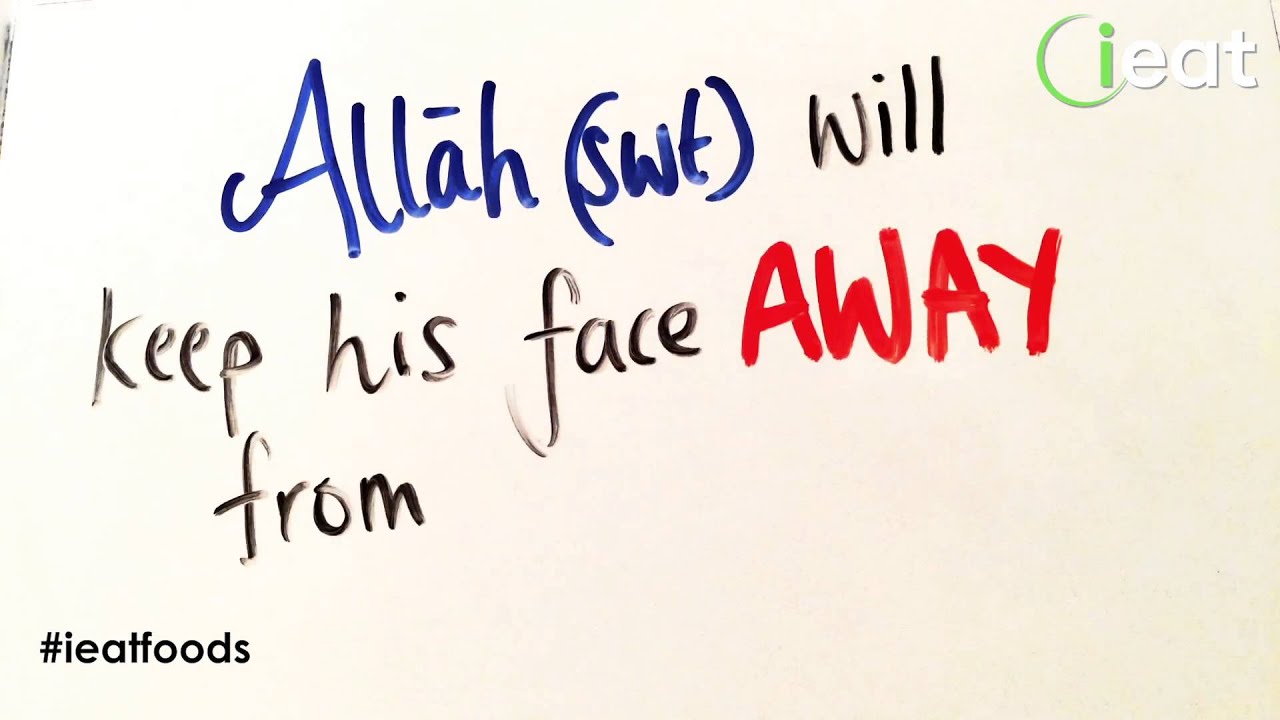 ieat
Allāh (swt) will
keep his face AWAY
from
#ieatfoods